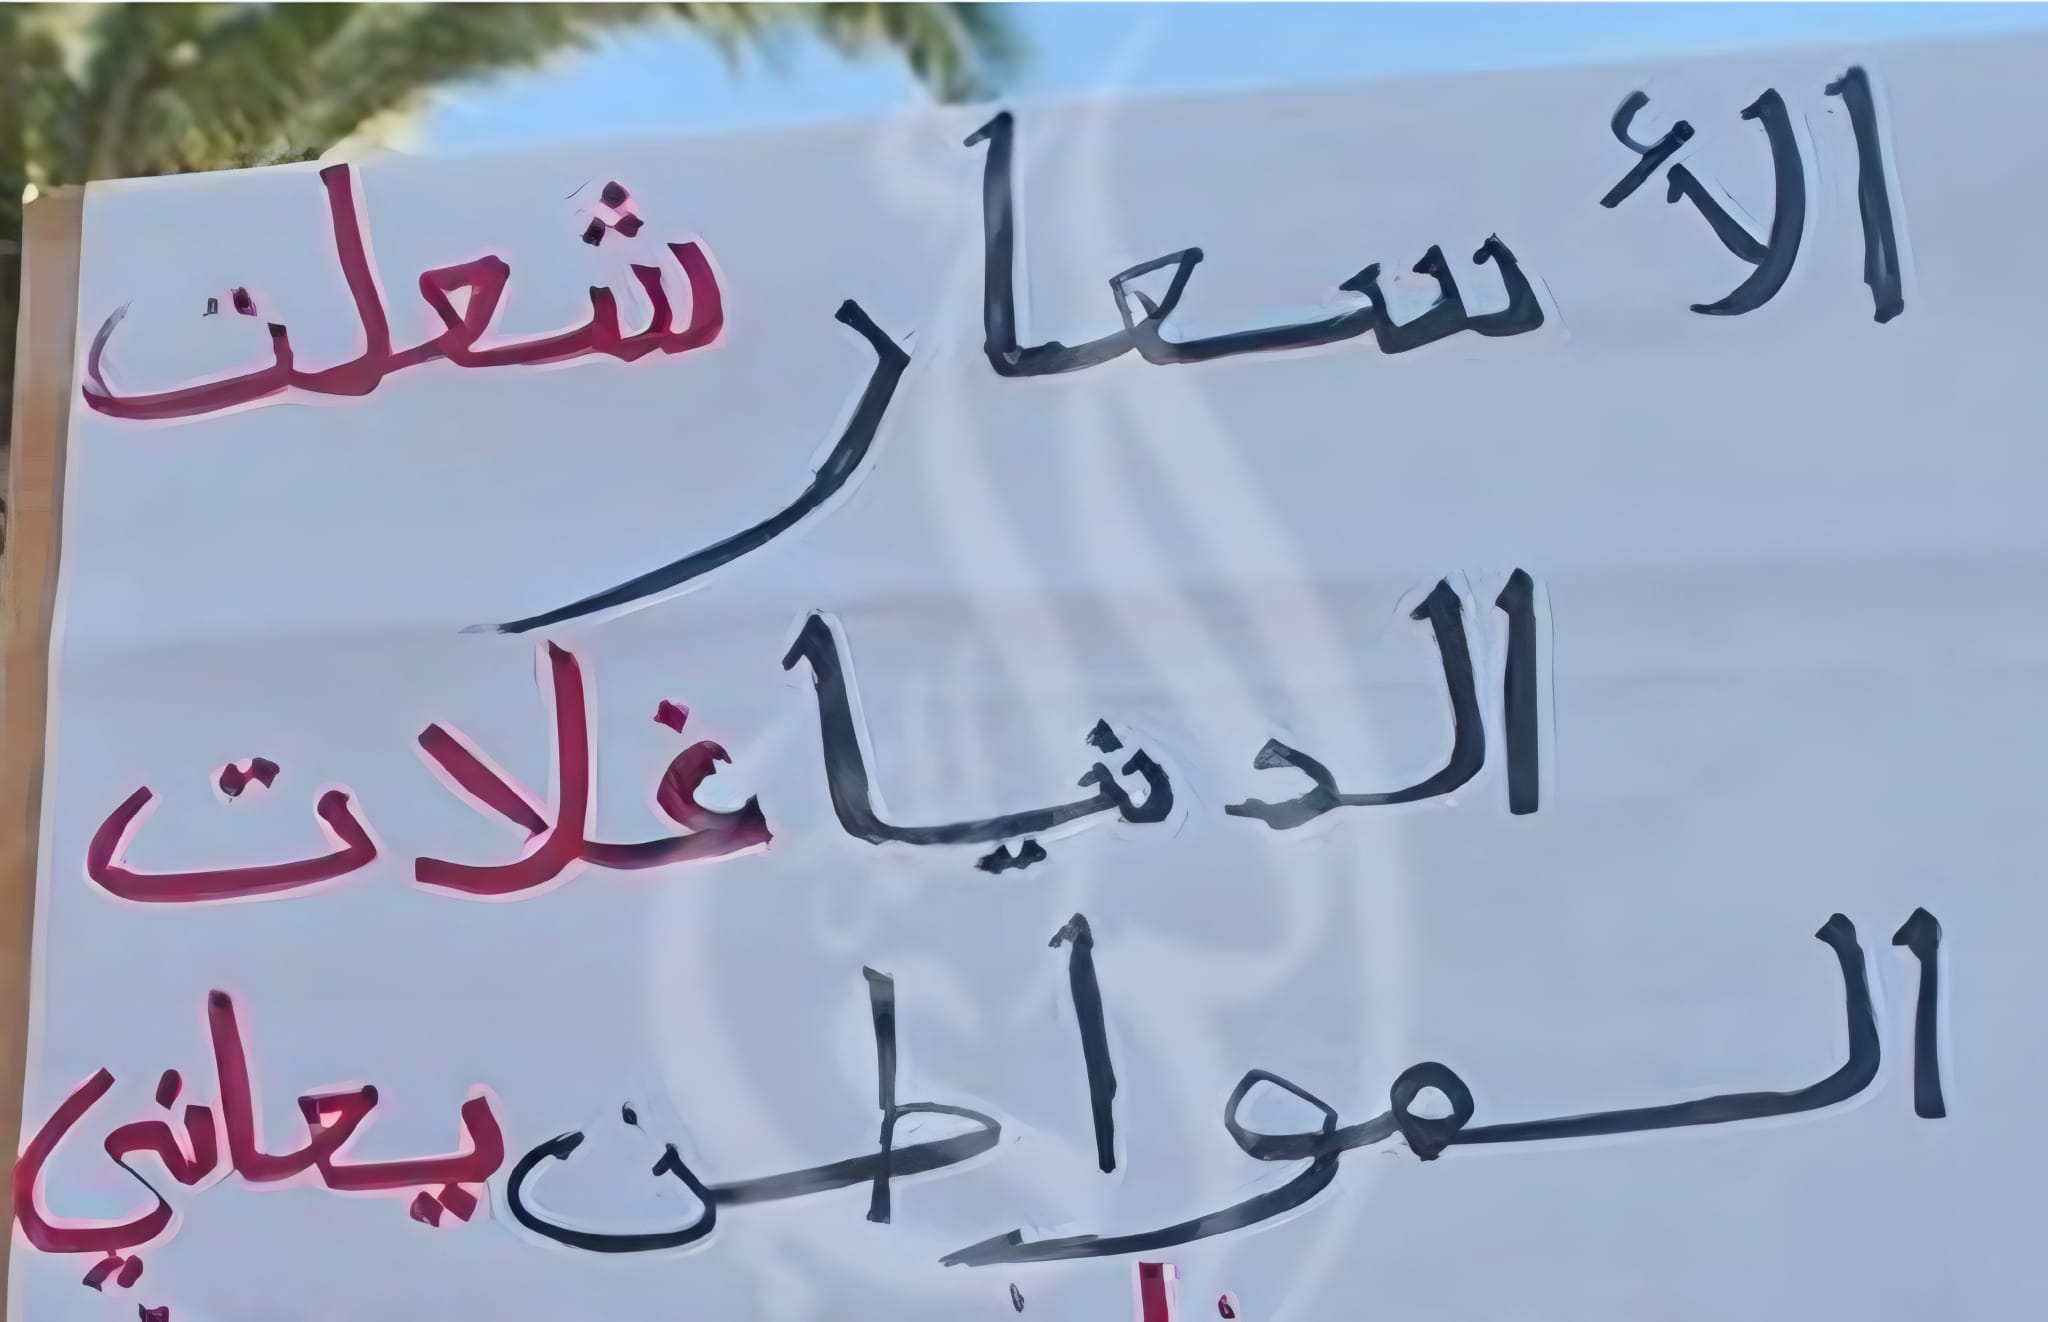 الأسعار شعلت
الدنيا غلات
المواطن يعاني